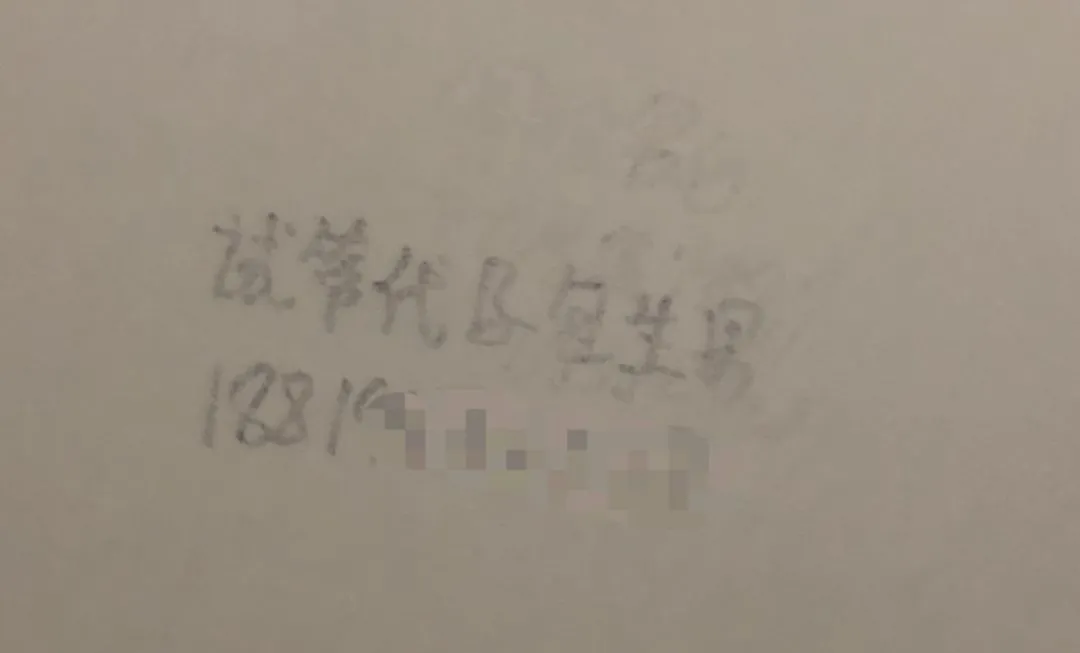 试管代孕包生男
18819